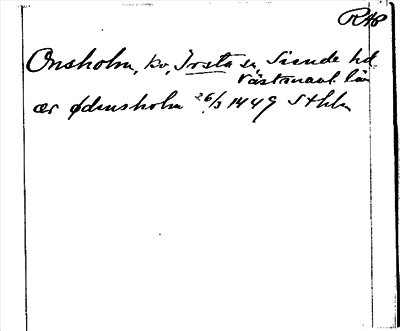 RAP
Onsholm, kv, Irsta sn, Siende hd
Västmanl. län
ær ødinsholm 26/3 1449 Sthlm